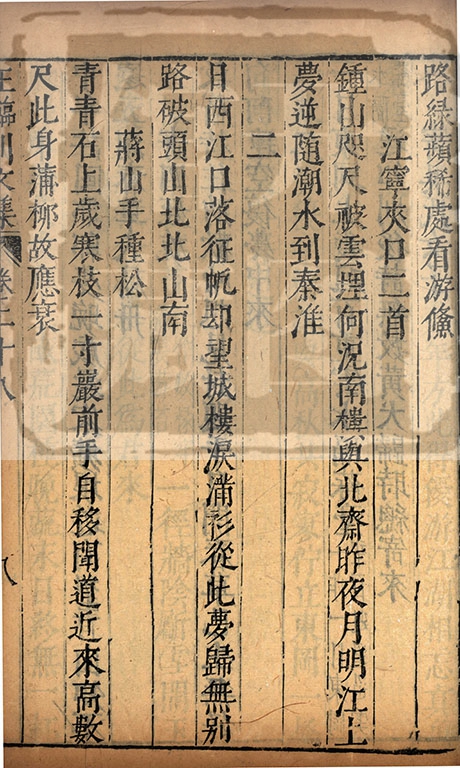 路緑蘋稀處看游鯈
江寧夾口二首
鍾山咫尺被雲埋何況南樓與北齋昨夜月明江上
夢逆隨潮水到秦淮
二
日西江口落征帆却望城樓淚滿衫從此夢歸無別
路破頭山北北山南
蔣山手種松
青青石上歲寒枝一寸巖前手自移聞道近來高數
尺此身蒲柳故應衰
王臨川文集 卷三十八 八